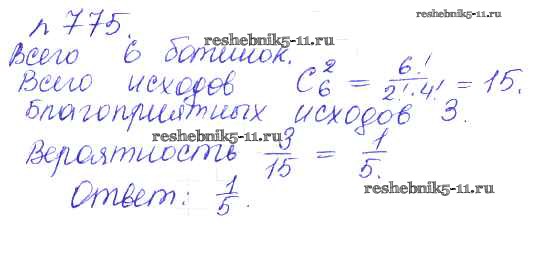 № 775.
reshebnik5-11.ru
Всего 6 ботинок.
reshebnik5-11.ru
Всего исходов C₆² = 6!/(2!·4!) = 15.
Благоприятных исходов 3.
reshebnik5-11.ru
Вероятность 3/15 = 1/5.
reshebnik5-11.ru
Ответ: 1/5.